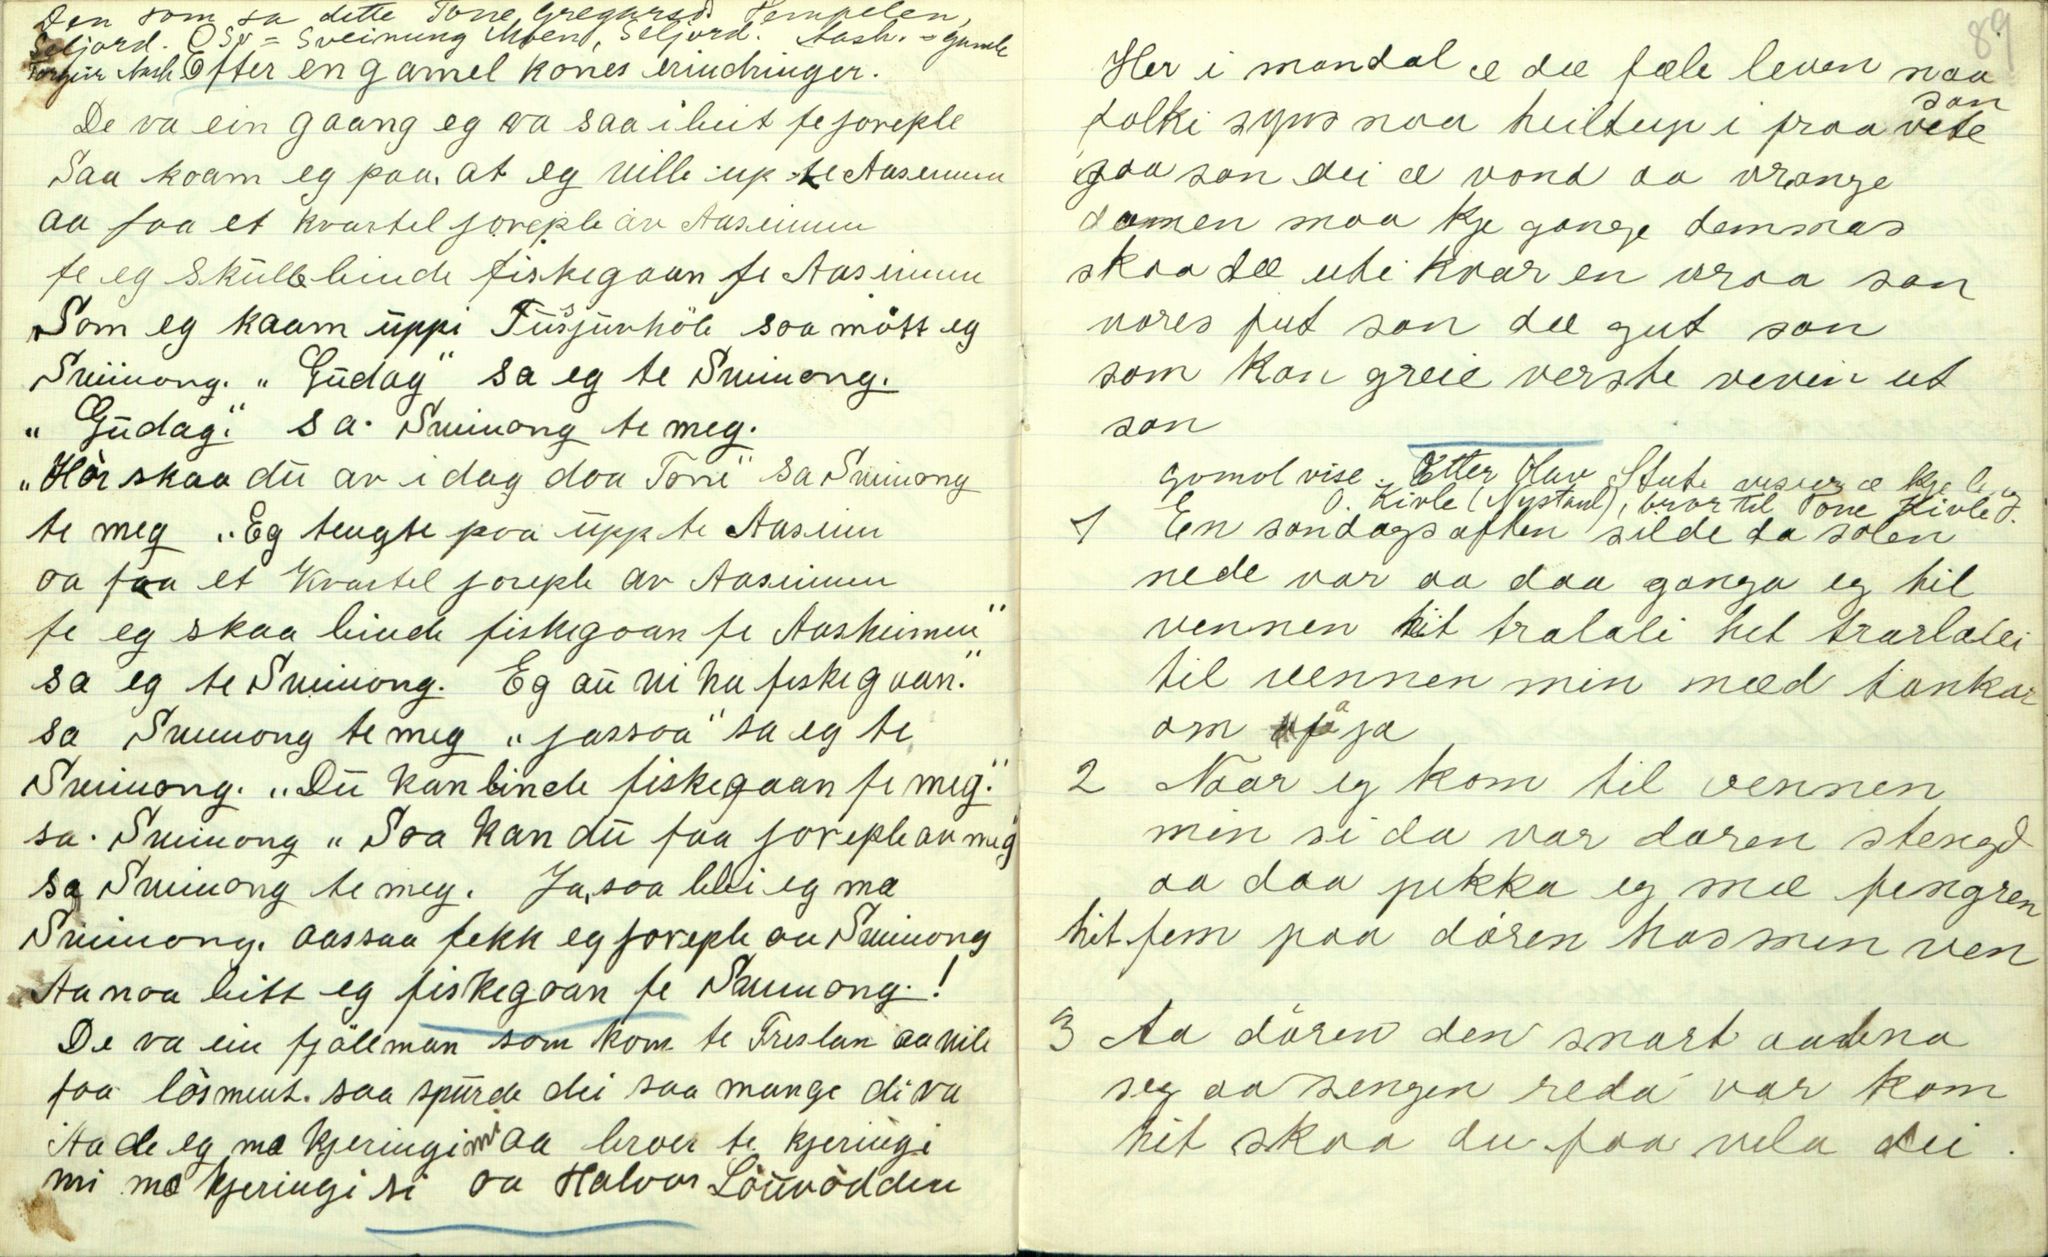 Den som sa dette Tone Gregarsd. Tempelen,
Seljord. OSv = Sveinung Moen, Seljord. Aash. = gamle
Torgeir Aash.
Efter en gamel kones erindringer.
De va ein gaang eg va saa i beit fe joreple
Saa koam eg paa, at eg ville up te Aaseimen
aa faa et kvartel joreple av Aaseimen
fe eg skulle binde fiskegaan fe Aaseimen
Som eg kaam üppi Tüssjürhöle saa mött eg
Sveinong. „Güdag" sa eg te Sveinong.
„Güdag." sa Sveinong te meg.
„Hòr skaa dü av i dag daa Tone" sa Sveinong
te meg „Eg tengte paa üpp te Aaseimen
aa faa et Kvartel joreple av Aaseimen
fe eg skaa binde fiskegaan fe Aasheimen"
sa eg te Sveinong. Eg aü vi ha fiskegaan."
sa Sveinong te meg „jassaa" sa eg te
Sveinong. „Dü kan binde fiskegaan fe meg."
sa Sveinong „Saa kan dü faa joreple av meg"
sa Sveinong te meg. Ja, saa blei eg mæ
Sveinong. aassaa fekk eg joreple au Sveinong
Aa naa bitt eg fiskegaan fe Sveinong.!
De va ein fjöllman som kom te Treslan aa vile
faa lösment. saa spürde dei saa mange di va
Aa de eg mæ kjeringi mi aa broer te kjeringi
mi mæ kjeringi si aa Halvor Löüvödden
89
Her i mandal æ dæ fæle leven naa
folki syns naa heiltup i fraa vete san
gaa san dei æ vond aa vrange
damen maa kje gange demmas
skaa dæ uti kvar en vraa san
vores fut san dæ gut san
som kan greie verste veven ut
san
gomol vise. Etter Hav Stute viser æ kje le eg
O. Kivle (Nystaul), bror til Tone Kivle
1 En sondags aften silde da solen
nede var aa daa ganga eg til
vennen hit tralali het trarlalei
til vennen min mæd tankar
om aa ja
2 Naar eg kom til vennen
min si da var doren stengd
aa daa pikka eg mæ fengren
hit fem paa dören hos min ven
3 Aa dören den snart aabna
seg aa sengen reda var kom
hit skaa du faa vela dei.